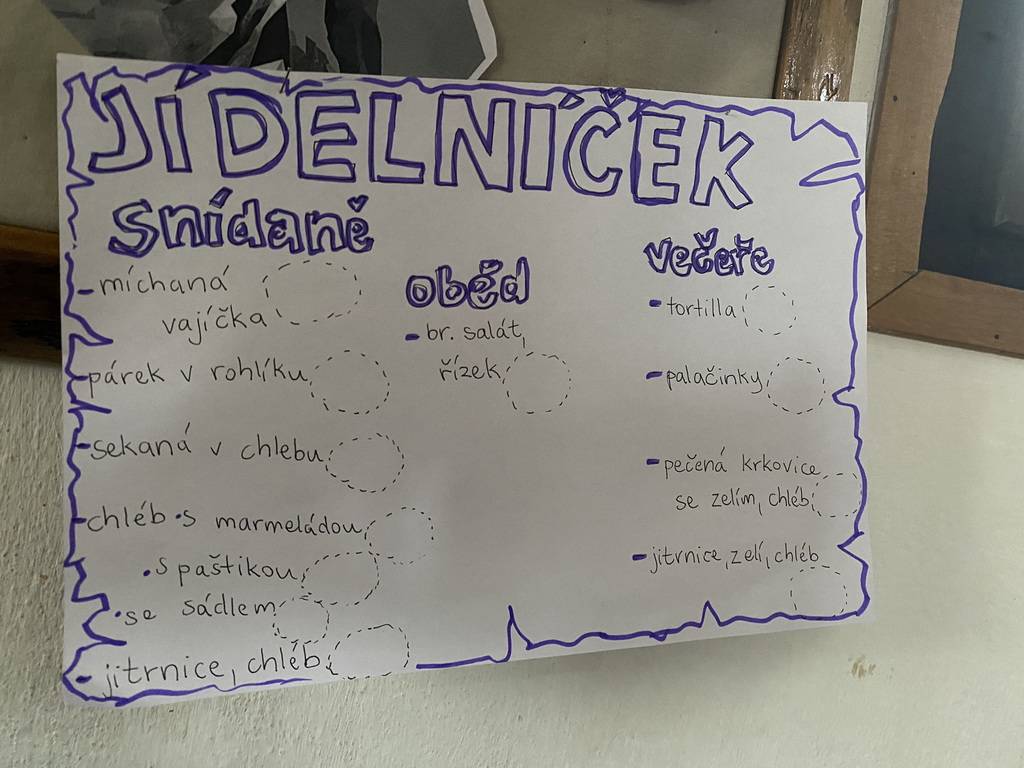 JÍDELNÍČEK
snídaně
- míchaná
vajíčka
- párek v rohlíku
- sekaná v chlebu
- chléb • s marmeládou
• s paštikou
• se sádlem
- jitrnice, chléb
oběd
- br. salát,
řízek
večeře
- tortilla
- palačinky
- pečená krkovice
se zelím, chléb
- jitrnice, zelí, chléb